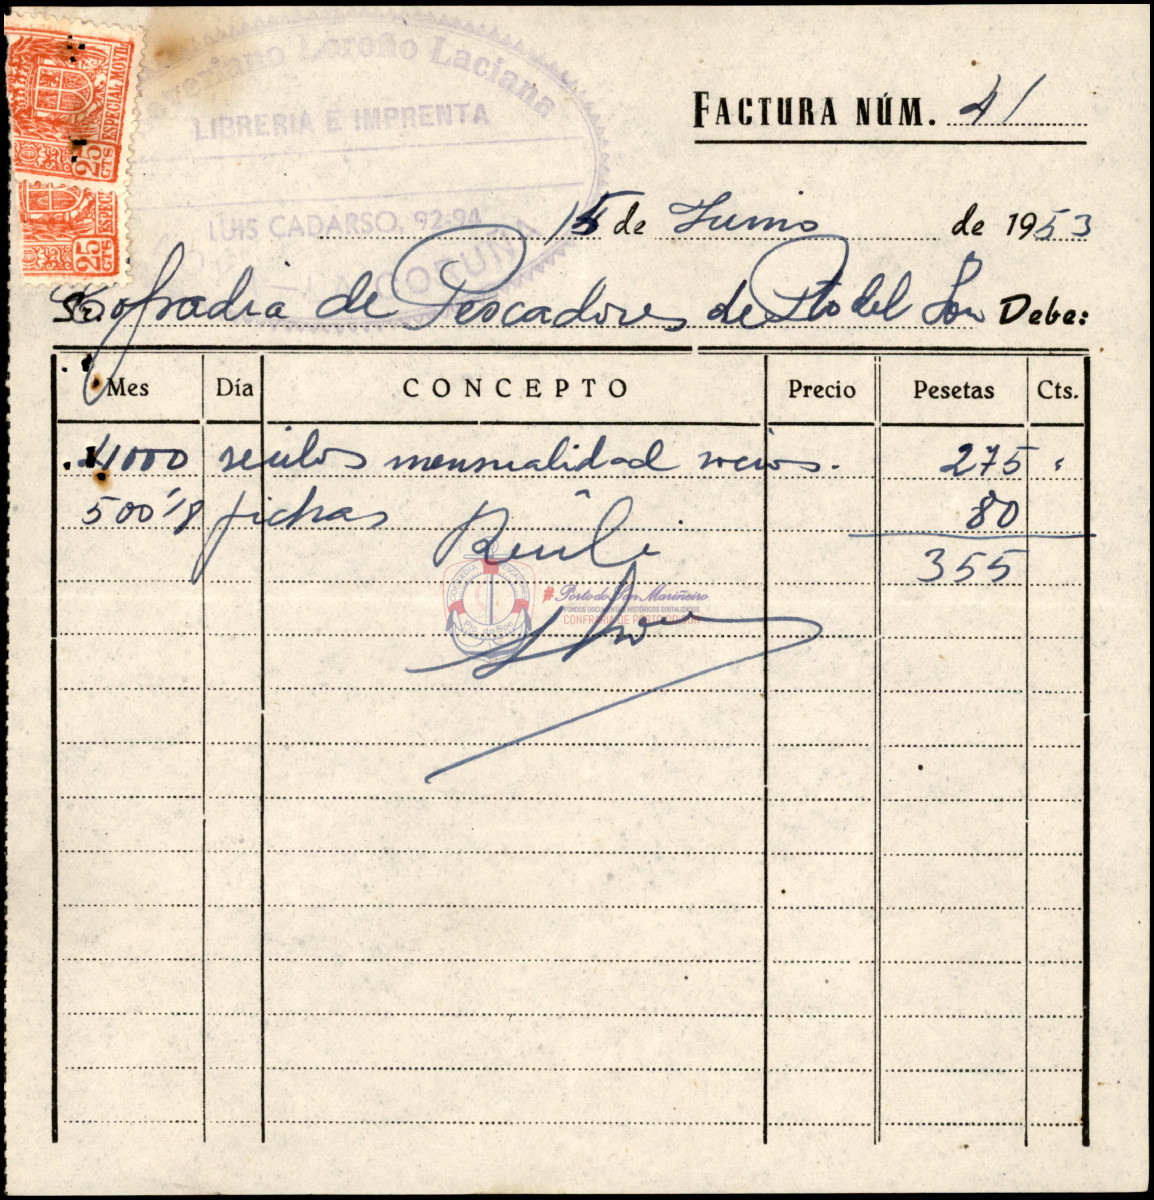 ESPECIAL MOVIL
25 CTS
ESPECI
25 CTS
Loreño Laciana
LIBRERIA E IMPRENTA
LUIS CADARSO, 92-94
LA CORUÑA
FACTURA NÚM. 41
15 de Junio de 1953
Sr. Cofradia de Pescadores de Pto del Son Debe:
Mes Día CONCEPTO Precio Pesetas Cts.
4000 recibos mensualidad socios. 275
500 fichas 80
355
Recibí
COFRADIA
Pto. do Son
# Porto do Son Mariñeiro
FONDOS DOCUMENTAIS HISTÓRICOS DIXITALIZADOS
CONFRARÍA DE PORTO DO SON